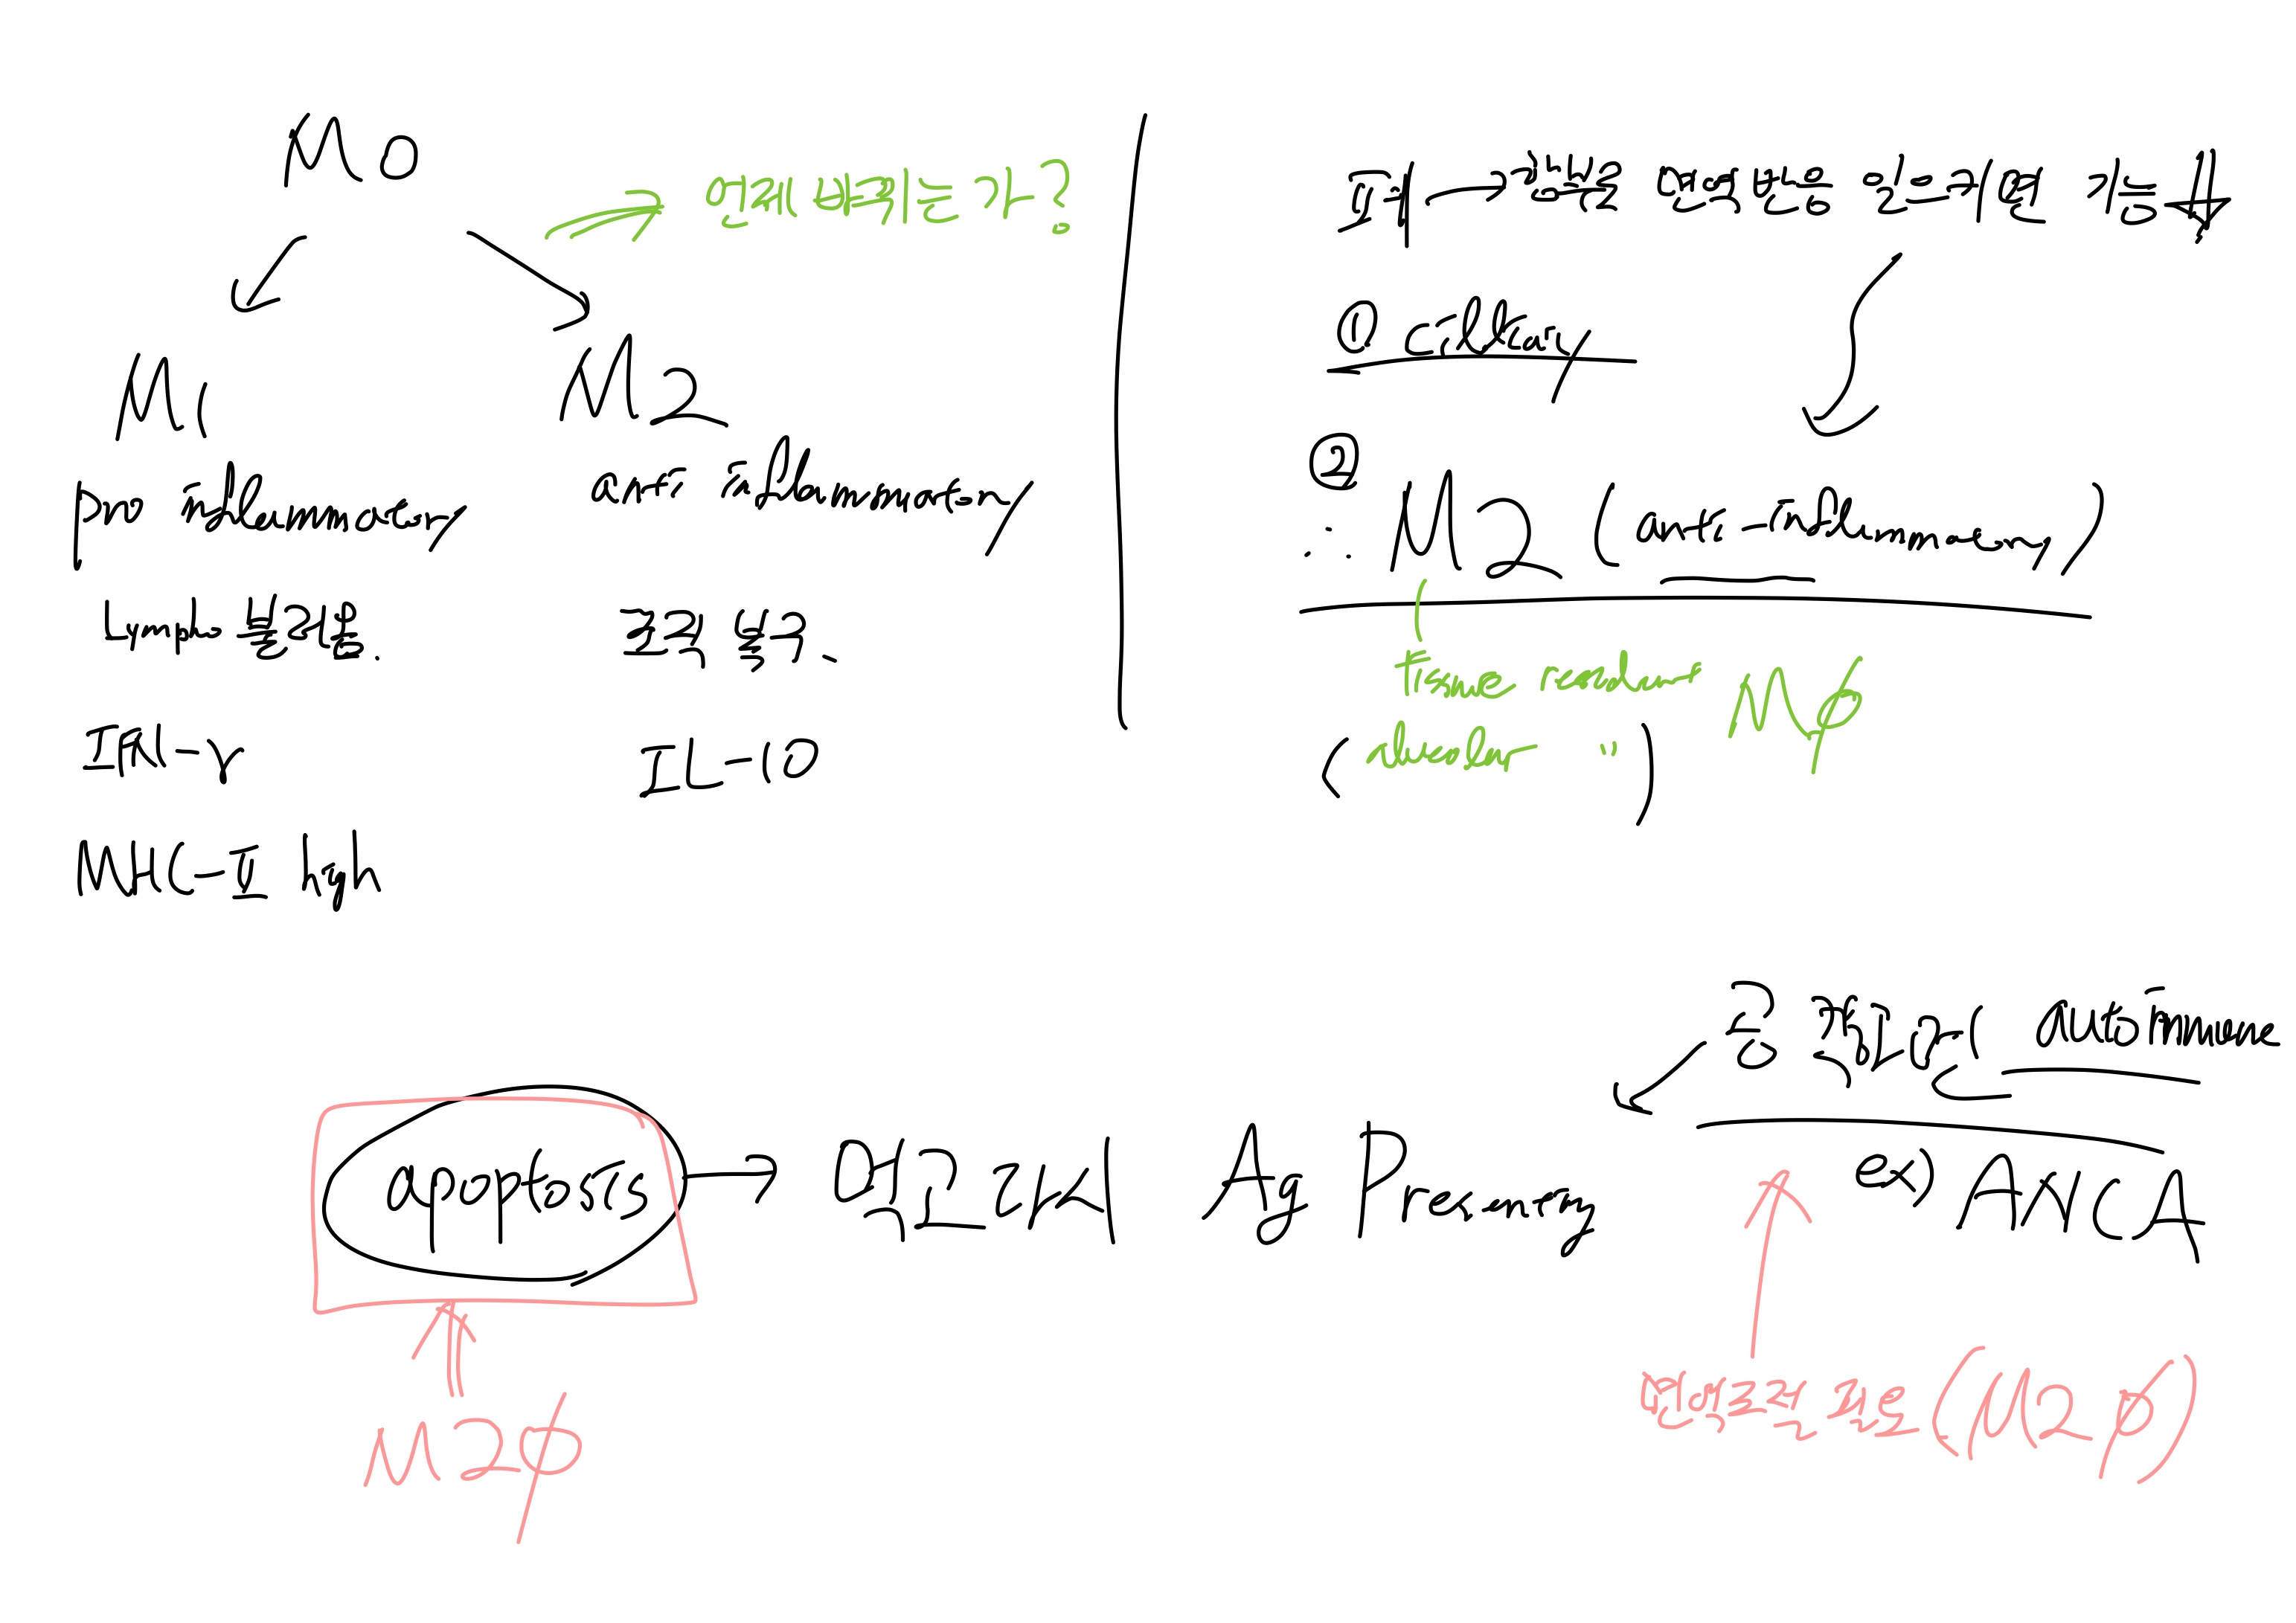 M0
→ 언제 바뀌는가?
M1
M2
pro inflammatory
anti inflammatory
Lympho 불러옴.
조직 복구.
IFN-γ
IL-10
MHC-II high
폐 → 잦은 면역반응 일으키면 기능↓
① ciliary
②
∴ M2 (anti-inflammatory)
tissue resident Mφ
(alveolar 〃)
apoptosis → Ag Presenting
autoimmune
ex) ANCA
M2φ
면역조절 치료 (M2φ)